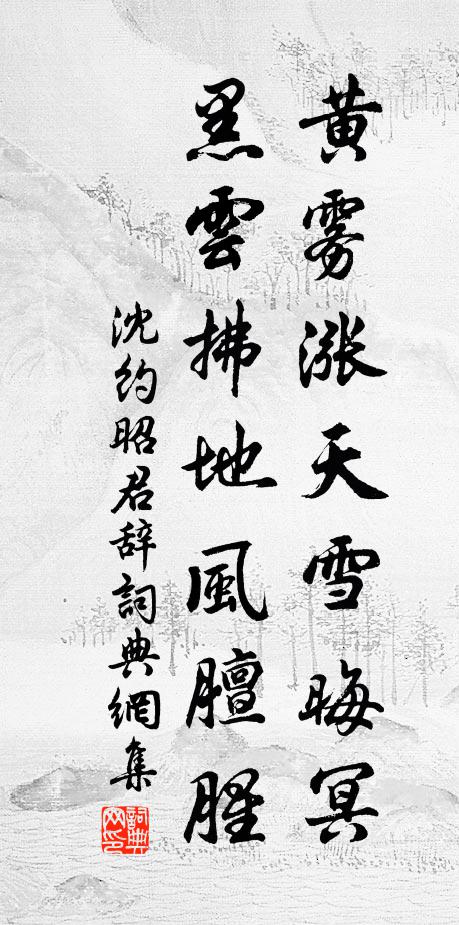 黄雾涨天雪晦冥
黑雲拂地風膻腥
沈约昭君辞詞典網集
詞典网印